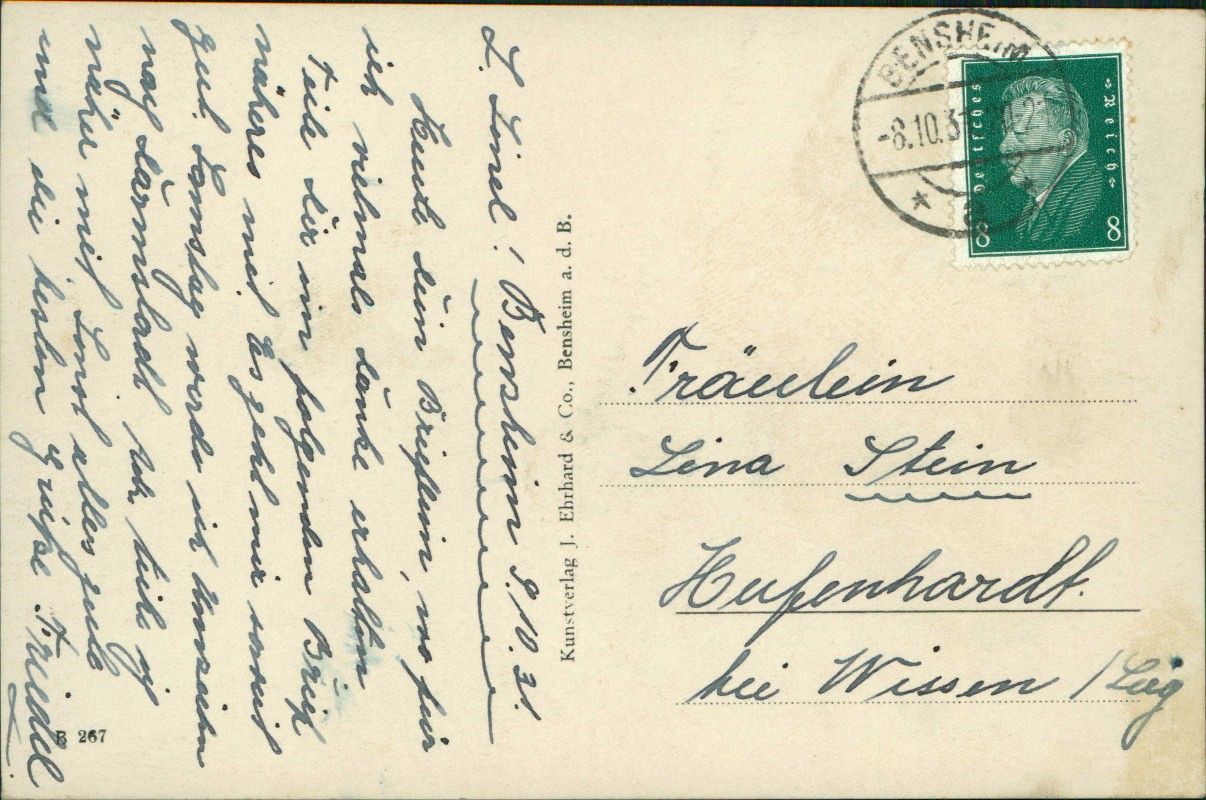 L. Linel! Bensheim 9.10.31.
Heute dein Brieflein, wo für
ich vielmals danke erhalten
Teile dir im folgenden Brief
näheres mit Es geht mir soweit
gut. Samstag werde ich
nach Darmstadt teile
näher mit Sonst alles gute
und die besten Grüße Friedel.
B 267
Kunstverlag J. Ehrhard & Co., Bensheim a. d. B.
BENSHEIM
-8.10.31
Deutsches Reich
8 8
Fräulein
Lina Stein
Hufenhardt.
bei Wissen / Sieg